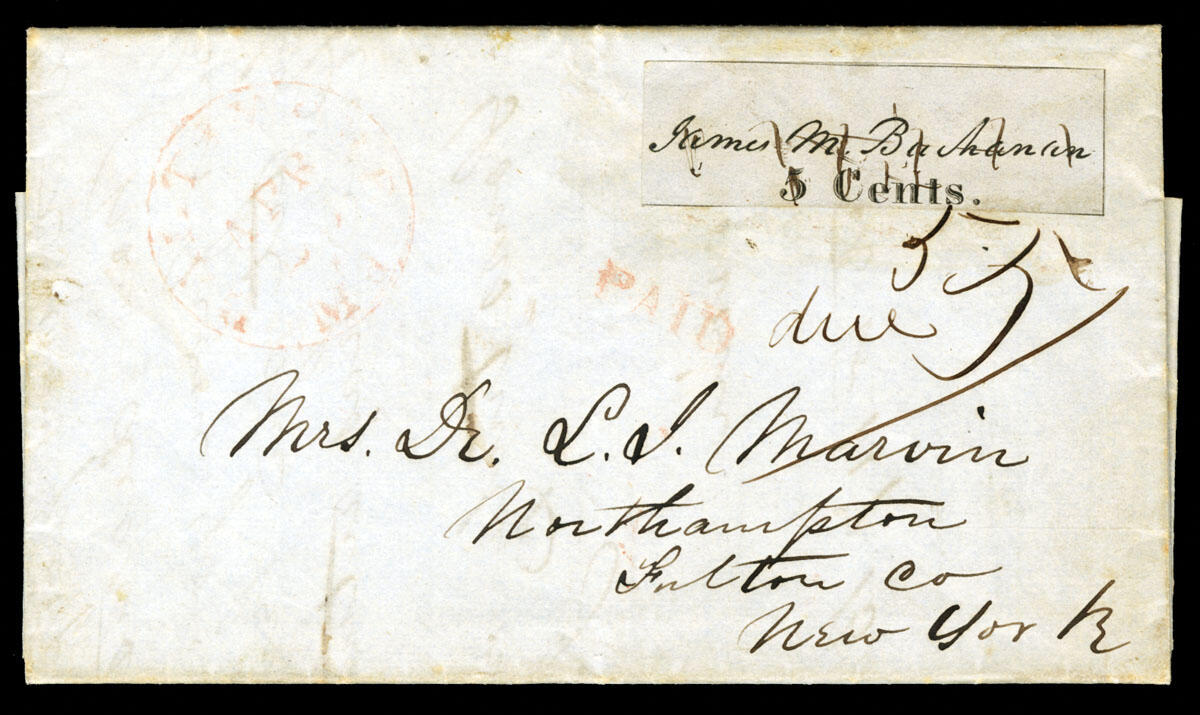 James M. Buchanan
5 Cents.
5
PAID
due 5
Mrs. Dr. L. I. Marvin
Northampton
Fulton Co
New York